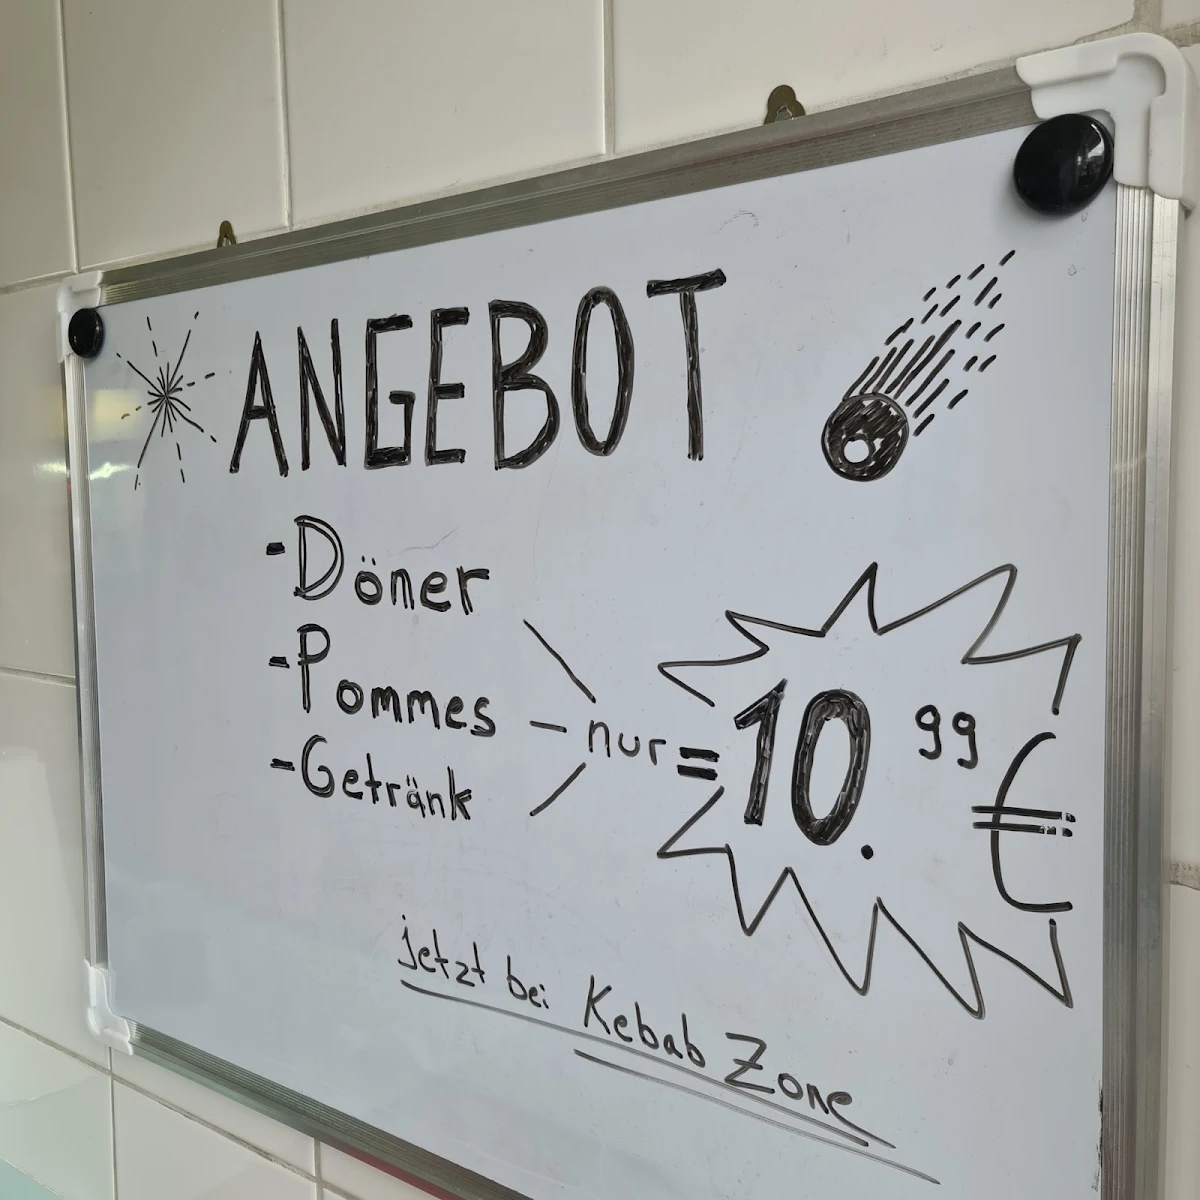 ANGEBOT
-Döner
-Pommes
-Getränk
nur = 10.99 €
jetzt bei Kebab Zone